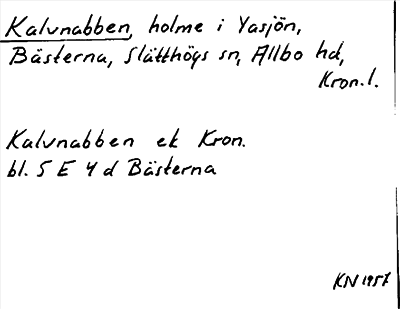 Kalvnabben, holme i Yasjön,
Bästerna, Slätthögs sn, Allbo hd,
Kron.l.
Kalvnabben ek Kron.
bl. 5 E 4 d Bästerna
KN 1957